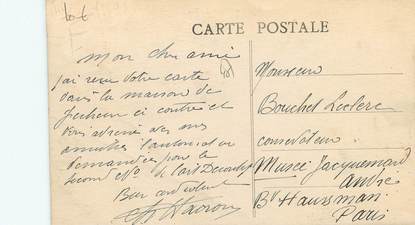 CARTE POSTALE
Mon cher ami
j'ai reçu votre carte
dans la maison de
ci contre et
vous adresse avec mes
amitiés l'autorisation
demandée pour le
second No de l'art
Bien
Monsieur
Bouchot Leclerc
conservateur
Musée Jacquemard
André
Bd Haussman
Paris